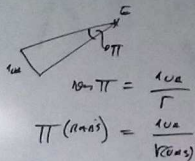 E
π
1UA
sen π = 1UA / r
π (RADS) = 1UA / r(UAS)